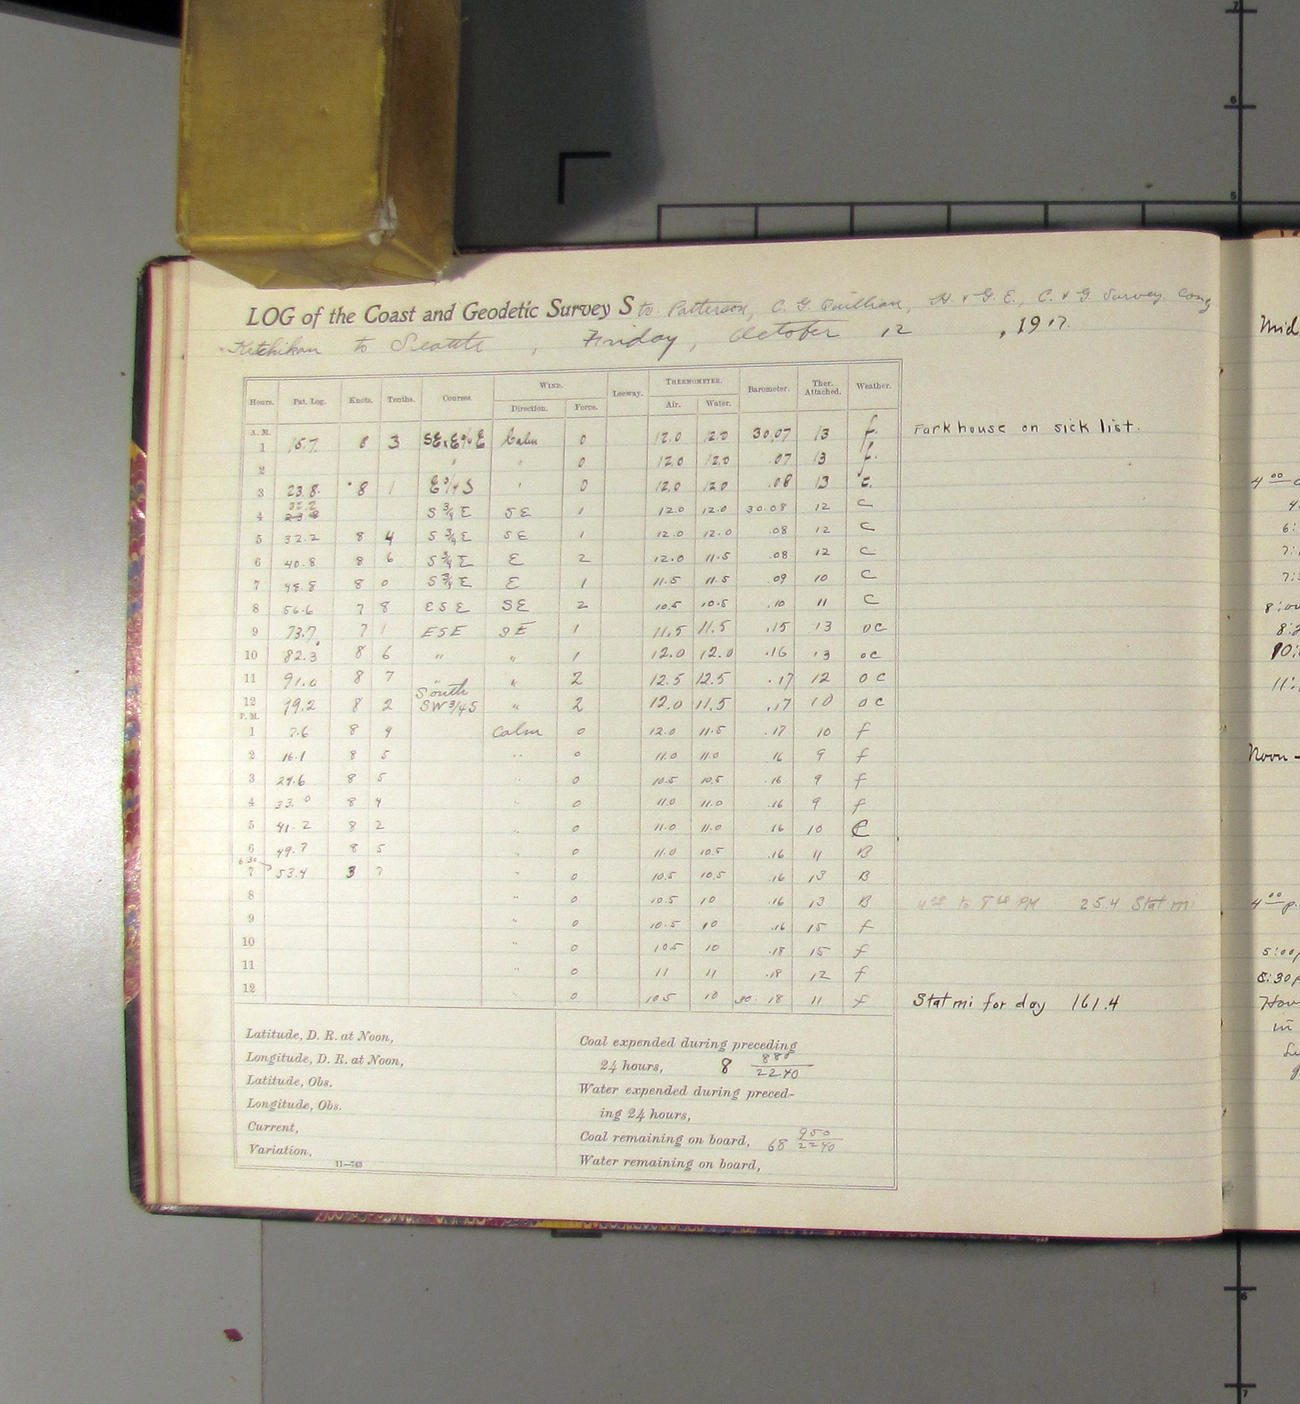 LOG of the Coast and Geodetic Survey Str. Patterson, C. G. Quillian, H. & G. E., C. & G. Survey Comg
Ketchikan to Seattle, Friday, October 12, 1917.
Hours. Pat. Log. Knots. Tenths. Courses. WIND. Direction. Force. Leeway. THERMOMETER. Air. Water. Barometer. Ther. Attached. Weather.
A. M.
1 15.7 8 3 Calm 0 12.0 12.0 30.07 13 f. Parkhouse on sick list.
2 " 0 12.0 12.0 .07 13 f.
3 23.8 8 1 E 3/4 S " 0 12.0 12.0 .08 13 c.
4 32.2 S 3/4 E SE 1 12.0 12.0 30.08 12 C
5 32.2 8 4 S 3/4 E SE 1 12.0 12.0 .08 12 C
6 40.8 8 6 S 3/4 E E 2 12.0 11.5 .08 12 C
7 48.8 8 0 S 3/4 E E 1 11.5 11.5 .09 10 C
8 56.6 7 8 ESE SE 2 10.5 10.5 .10 11 C
9 73.7 7 1 ESE SE 1 11.5 11.5 .15 13 oc
10 82.3 8 6 " " 1 12.0 12.0 .16 13 oc
11 91.0 8 7 " " 2 12.5 12.5 .17 12 oc
12 99.2 8 2 South SW 3/4 S " 2 12.0 11.5 .17 10 oc
P. M.
1 7.6 8 4 Calm 0 12.0 11.5 .17 10 f
2 16.1 8 5 " 0 11.0 11.0 16 9 f
3 24.6 8 5 " 0 10.5 10.5 .16 9 f
4 33.0 8 4 " 0 11.0 11.0 .16 9 f
5 41.2 8 2 " 0 11.0 11.0 16 10 C
6 49.7 8 5 " 0 11.0 10.5 .16 11 B
6 30
7 53.4 3 7 " 0 10.5 10.5 .16 13 B
8 " 0 10.5 10 .16 13 B 4 00 to 8 00 PM 25.4 Stat mi
9 " 0 10.5 10 .16 15 f
10 " 0 10.5 10 .18 15 f
11 " 0 11 11 .18 12 f
12 0 10.5 10 30.18 11 f Stat mi for day 161.4
Latitude, D. R. at Noon,
Longitude, D. R. at Noon,
Latitude, Obs.
Longitude, Obs.
Current,
Variation,
11—763
Coal expended during preceding
24 hours, 8 880/2240
Water expended during preced-
ing 24 hours,
Coal remaining on board, 68 950/2240
Water remaining on board,
Mid
4 00
7:
8:00
10:
11:
Noon -
4 00 p.
5:00p
8:30p
in